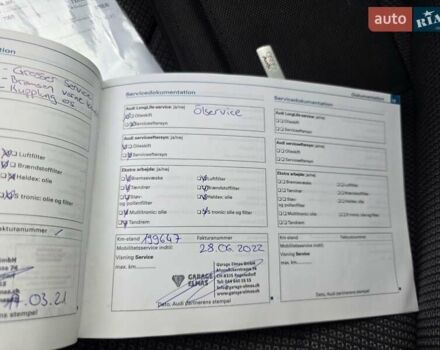 auto RIA
- Grosser Service
- Bremsen vorne
- Kupplung
Luftfilter
Brændstoffilter
Haldex: olie
S tronic: olie og filter
Fakturanummer
.03.21
ens stempel
Servicedokumentation
Audi LongLife-service: ja/nej
Olieskift
Serviceeftersyn
Ölservice
Audi serviceeftersyn: ja/nej
Olieskift
Serviceeftersyn
Ekstra arbejder: ja/nej
Bremsevæske
Luftfilter
Tændrør
Brændstoffilter
Støv-
og pollenfilter
Haldex: olie
Multitronic: olie
S tronic: olie og filter
Km-stand 199647 Fakturanummer
Mobilitetsservice indtil: 28.06.2022
Visning Service
max. km
GARAGE
ELMAS
Garage Elmas GmbH
Dato, Audi partnerens stempel
Dokumentation
Servicedokumentation
Audi LongLife-service: ja/nej
Olieskift
Serviceeftersyn
Audi serviceeftersyn: ja/nej
Olieskift
Serviceeftersyn
Ekstra arbejder: ja/nej
Bremsevæske
Luftfilter
Tændrør
Brændstoffilter
Støv-
og pollenfilter
Haldex: olie
Multitronic: olie
S tronic: olie og filter
Km-stand Fakturanummer
Mobilitetsservice indtil:
Visning Service
max. km
Dato, Audi partnerens stempel